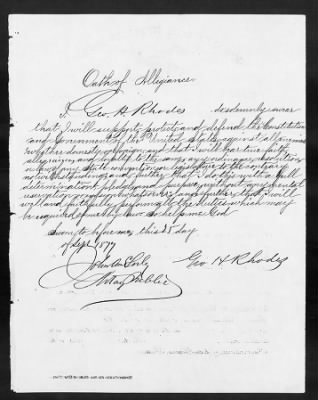 Oath of Allegiance
I, Geo. H Rhodes do solemnly swear
that I will support, protect and defend the Constitution
and Government of the United States against all enemies
whether domestic or foreign and that I will bear true faith
allegiance and loyalty to the same any ordinance, resolution
or law of any state convention or legislature to the contrary
notwithstanding and further that I do this with a full
determination, pledge and purpose, without any mental
reservation or evasion whatsoever and further that I will
well and faithfully perform all the duties which may
be required of me by law so help me God
Sworn to before me this 25 day
of Sept 1877
Geo H Rhodes
Notary Public